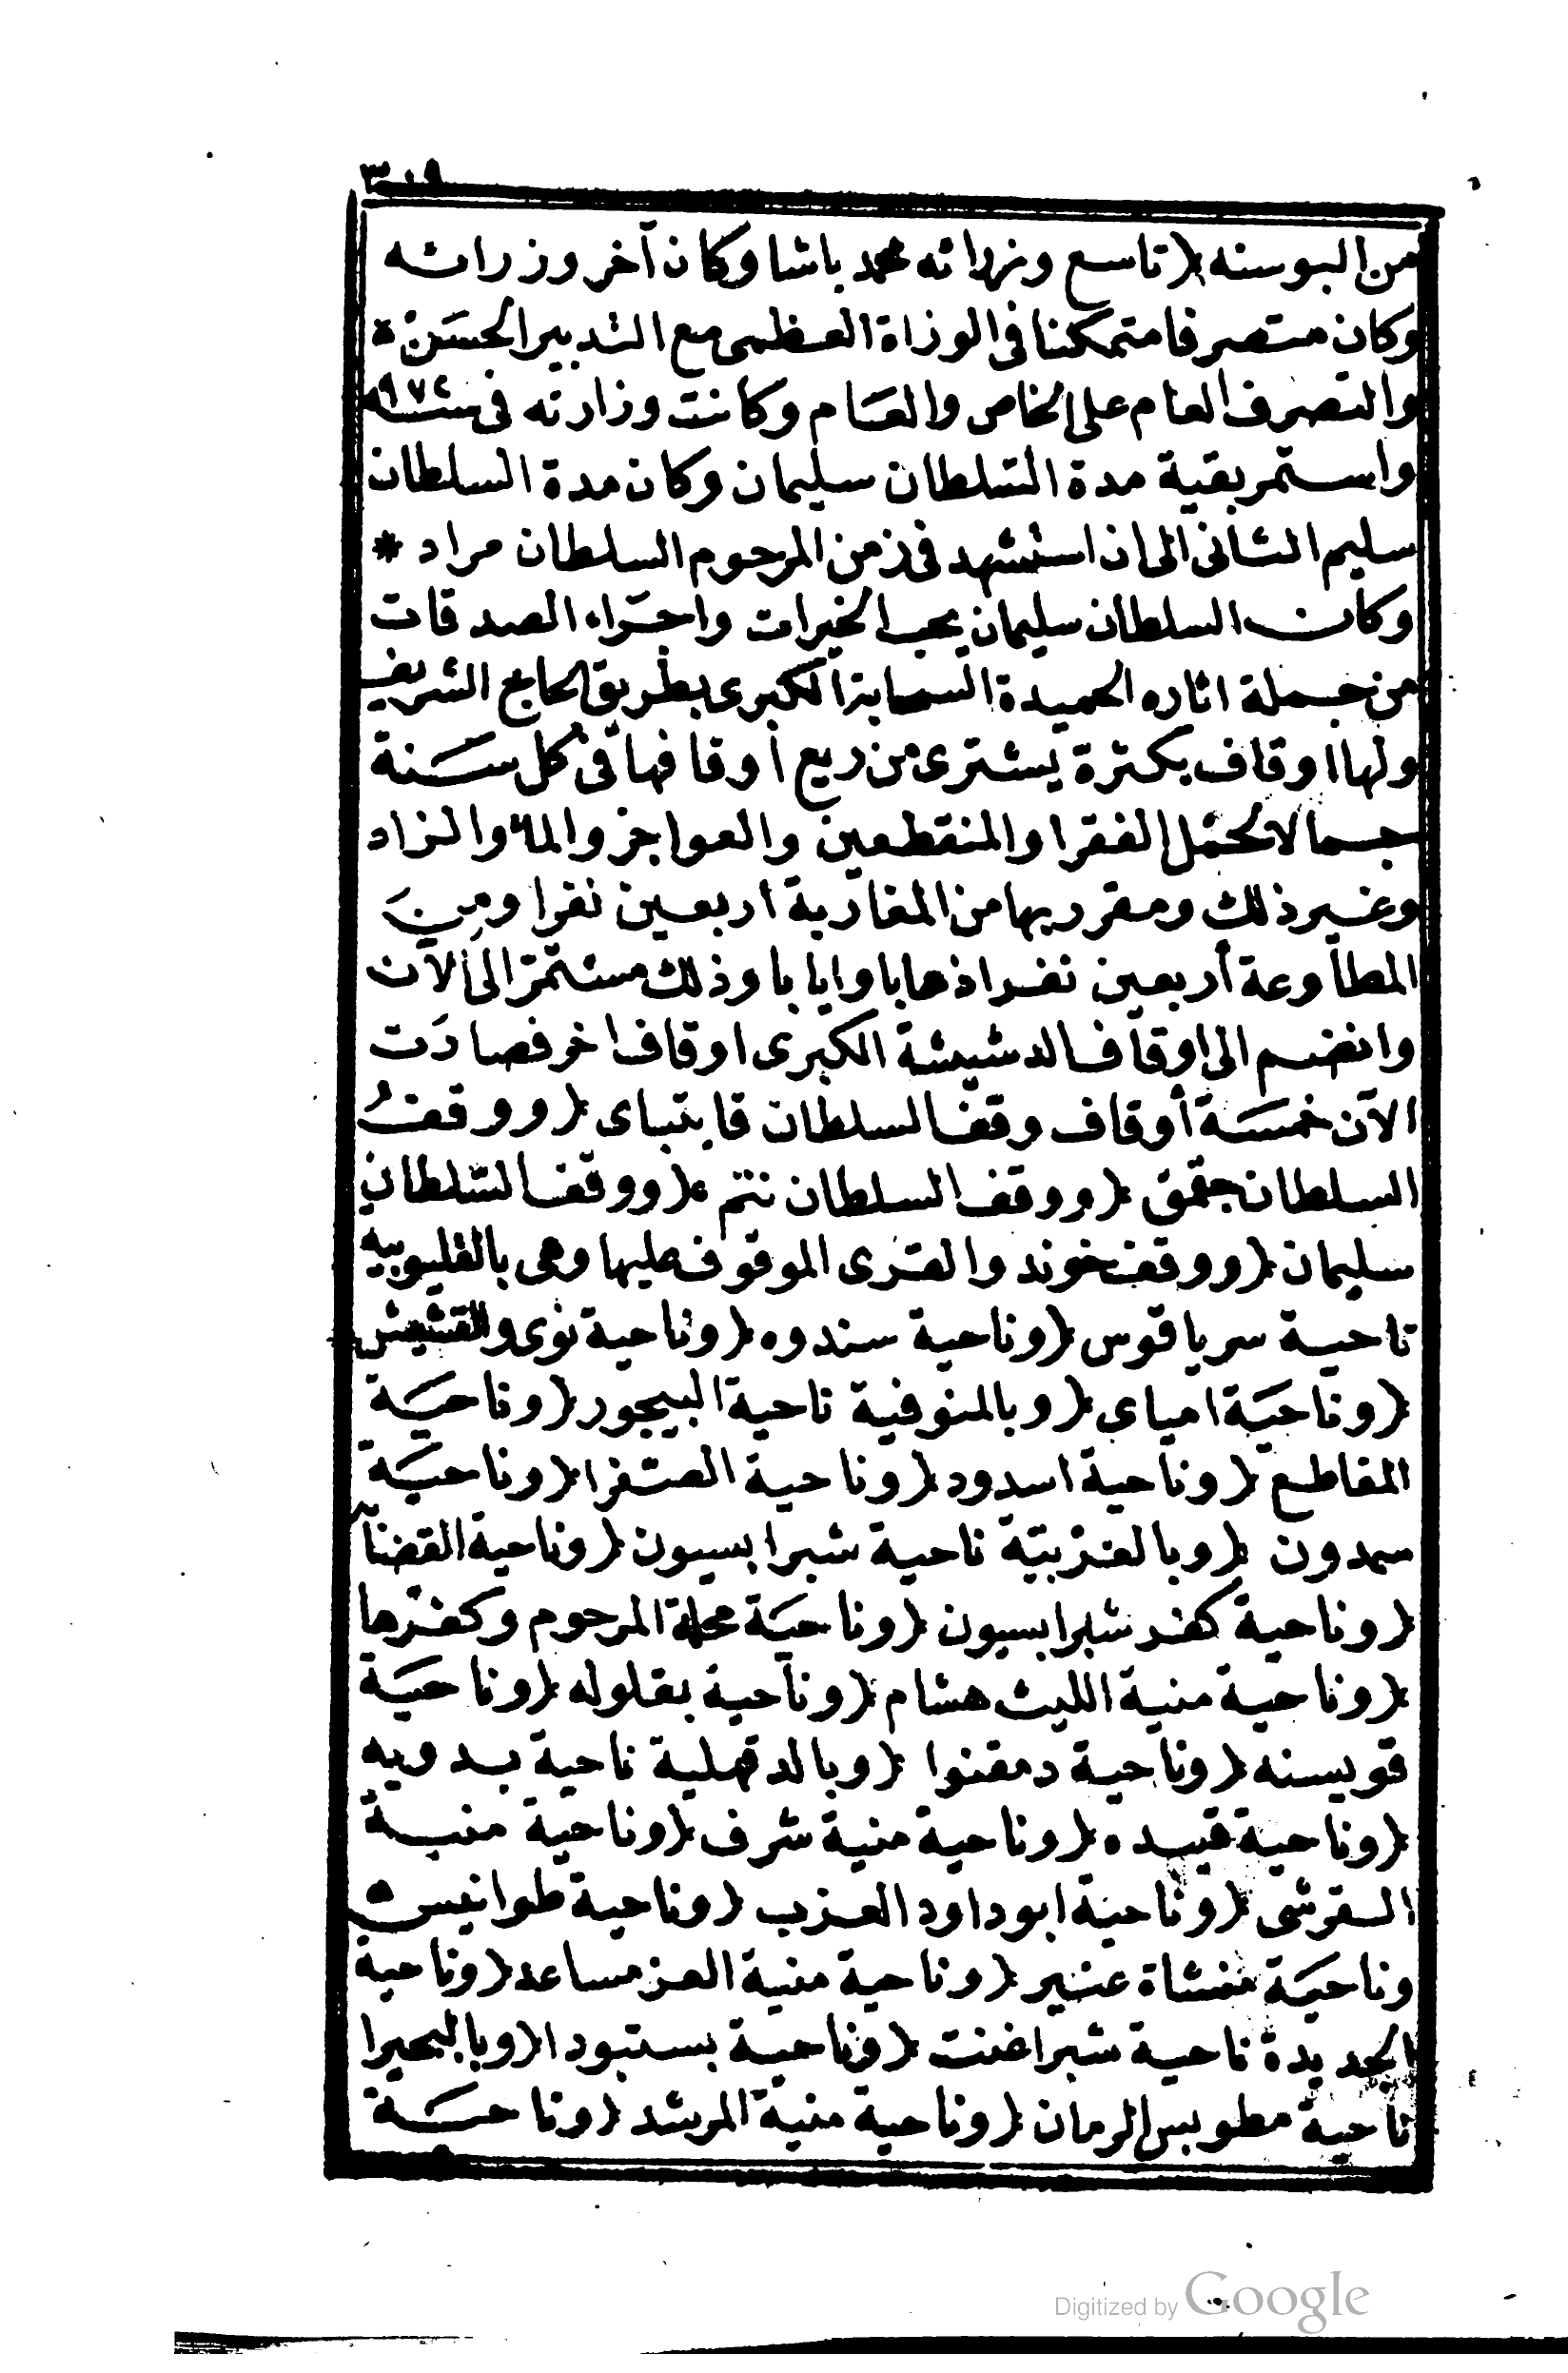 ٣٠٩
من البوسنه ﴿ تاسع وزرائه محمد باشا وكان آخر وزرائه
وكان متصرفا متمكنا فى الوزاة العظمى مع التدبير الحسن ة
والتصرف العام على الخاص والعام وكانت وزارته فى سنه ٩٧٢
واستمر بقية مدة السلطان سليمان وكان مدة السلطان
سليم الثانى الى ان استشهد فى زمن المرحوم السلطان مراد *
وكان السلطان سليمان يحب الخيرات واجراء الصدقات
من جملة اثاره الحميدة السحابة الكبرى بطريق الحاج الشريف
ولها اوقاف بكثرة يشترى من ريع أوقافها فى كل سنة
جمالا لحمل الفقرا والمنقطعين والعواجز والماء والزاد
وغير ذلك ومقرر بها من المغاربة اربعين نفرا ومن
المطاوعة أربعين نفرا ذهابا وايابا وذلك مستمر الى الآن
وانضم الى اوقاف الدشيشة الكبرى اوقاف اخر فصارت
الآن خمسة أوقاف وقف السلطان قايتباى ﴿ ووقف
السلطان جقمق ﴿ ووقف السلطان نتم ﴿ ووقف السلطان
سليمان ﴿ ووقف خوند والقرى الموقوف عليها وهى بالقليوبيه
ناحية سرياقوس ﴿ وناحية سندوه ﴿ وناحية نوى والقشيش
﴿ وناحية امياى ﴿ وبالمنوفية ناحية البيجور ﴿ وناحية
المقاطع ﴿ وناحية اسدود ﴿ وناحية الصفرا ﴿ وناحية
سمدون ﴿ وبالغربية ناحية شبرا بسيون ﴿ وناحية القضا
﴿ وناحية كفر شبرا بسيون ﴿ وناحية محلة المرحوم وكفرها
﴿ وناحية منية الليث هشام ﴿ وناحية بقلوله ﴿ وناحية
قويسنه ﴿ وناحية دمقنوا ﴿ وبالدقهلية ناحية بدويه
﴿ وناحية قبيده ﴿ وناحية منية شرف ﴿ وناحية منية
القرشى ﴿ وناحية ابوداود العزب ﴿ وناحية طوانيس
وناحية منشاة عنبر ﴿ وناحية منية العز مساعد ﴿ وناحية
الجديدة ناحية شبراغنت ﴿ وناحية بستبودا ﴿ وبالبحيرا
ناحية مطوبس الرمان ﴿ وناحية منية المرشد ﴿ وناحية
Digitized by Google